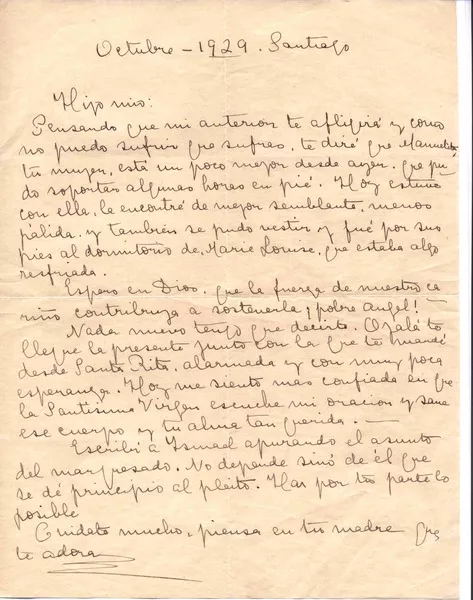 Octubre - 1929. Santiago
Hijo mio:
Pensando que mi anterior te afligirá y como
no puedo sufrir que sufras, te diré que Manuelita,
tu mujer, está un poco mejor desde ayer, que pu-
do soportar algunas horas en pié. Hoy estuve
con ella, la encontré de mejor semblante, menos
pálida, y tambien se pudo vestir y fué por sus
pies al dormitorio de Marie Louise, que estaba algo
resfriada.
Espero en Dios, que la fuerza de nuestro ca
riño contribuya a sostenerla ¡pobre angel! -
Nada nuevo tengo que decirte. Ojalá te
llegue la presente junto con la que te mandé
desde Santa Rita, alarmada y con muy poca
esperanza. Hoy me siento mas confiada en que
la Santisima Virgen escuche mi oracion y sane
ese cuerpo y tu alma tan querida. -
Escribí a Ismael apurando el asunto
del marquesado. No depende sinó de él que
se dé principio al pleito. Haz por tu parte lo
posible
Cuidate mucho, piensa en tu madre que
te adora